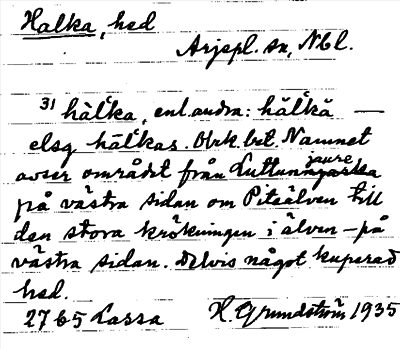 Halka, hed
Arjepl. sn, Nbl.
31 hàlˈka, enl. andra: hălˈkă —
elsg hàlˈkas. Obk. bet. Namnet
avser området från Luttunjaure
på västra sidan om Piteälven till
den stora krökningen i älven – på
västra sidan. Delvis något kuperad
hed.
2765 Lassa H. Grundström 1935